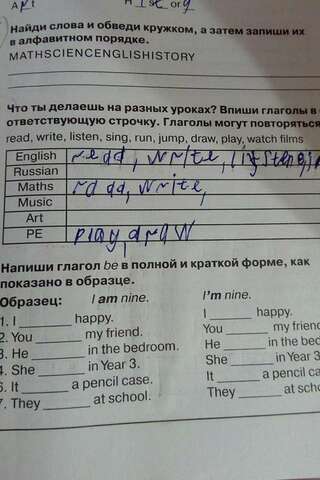 Найди слова и обведи кружком, а затем запиши их
в алфавитном порядке.
MATHSCIENCENGLISHISTORY
Что ты делаешь на разных уроках? Впиши глаголы в
ответствующую строчку. Глаголы могут повторяться
read, write, listen, sing, run, jump, draw, play, watch films
English read, write, listen,
Russian
Maths read, write,
Music
Art
PE play, draw
Напиши глагол be в полной и краткой форме, как
показано в образце.
Образец: I am nine. I'm nine.
1. I ______ happy. I ______ happy.
2. You ______ my friend. You ______ my friend
3. He ______ in the bedroom. He ______ in the bed
4. She ______ in Year 3. She ______ in Year 3
6. It ______ a pencil case. It ______ a pencil ca
7. They ______ at school. They ______ at scho